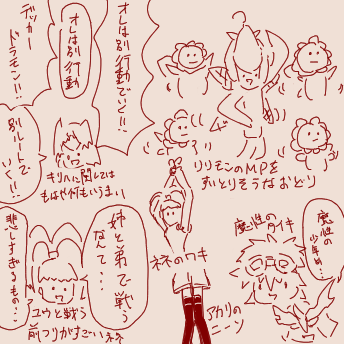 オレは別行動でいく!!
オレは別
行動
デッカー
ドラモン!!
別ルートで
いく!!
キリハに関しては
もはや何もいうまい
リリモンのMPを
すいとりそうなおどり
魔性の
少年め…
魔性のタイキ
ネネのワキ
アカリの
ニーソ
姉と弟で戦う
なんて…
悲しすぎるもの…
ユウと戦う
前フリがすごいネネ